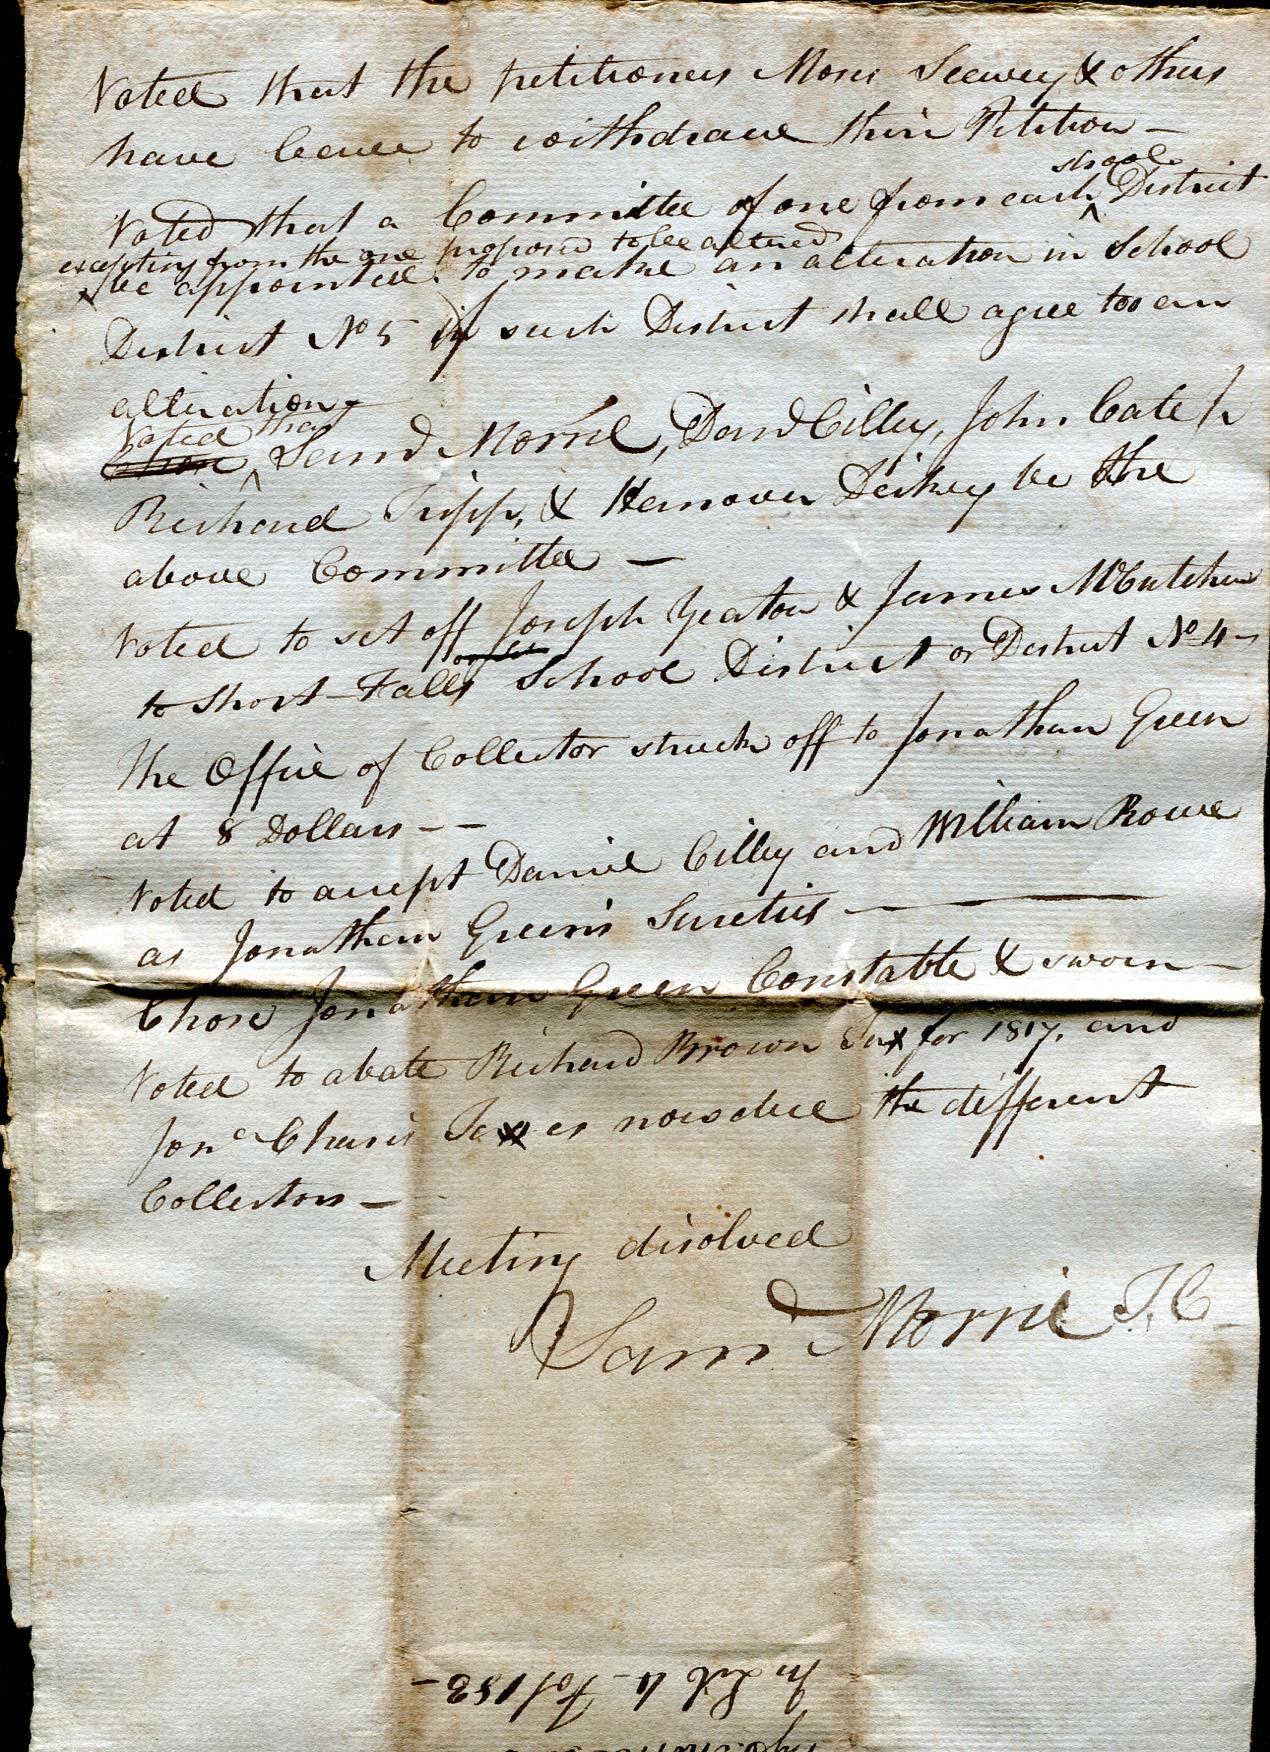 Voted that the petitioners Moses Seavey & others
have leave to withdraw their Petition —
school
Voted that a Committee of one from each ^ District
excepting from the one proposed to be altered
^ be appointed to make an alteration in School
District No 5 if such District shall agree to an
alteration —
Voted that
Chose ^ Samˡ Morril, Danˡ Cilley, John Cate Jr
Richard Tripp, & Hanover Dickey be the
above Committee —
Voted to set off Joseph Yeaton & James McCutchen
to Short-Falls School District or District No 4 —
The Office of Collector struck off to Jonathan Green
at 8 Dollars — —
Voted to accept Daniel Cilley and William Rowe
as Jonathan Green's Sureties —
Chose Jonathan Green Constable & sworn —
Voted to abate Richard Brown Tax for 1817. and
Jonª Chase's Taxes now due the different
Collectors —
Meeting disolved
Samˡ Morril T. C
In Lib 4 - Fol 182 -